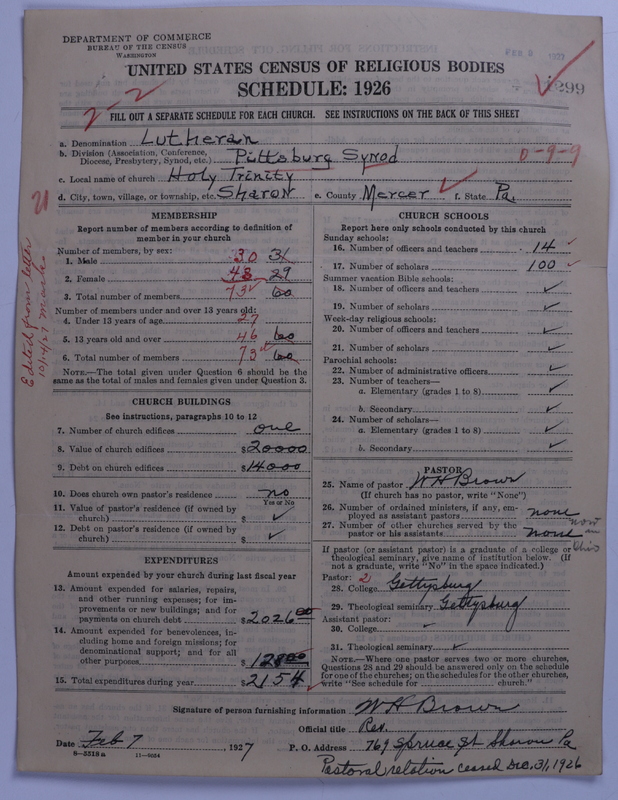 DEPARTMENT OF COMMERCE
BUREAU OF THE CENSUS
WASHINGTON
FEB 8 1927
UNITED STATES CENSUS OF RELIGIOUS BODIES
SCHEDULE: 1926
2-2
FILL OUT A SEPARATE SCHEDULE FOR EACH CHURCH. SEE INSTRUCTIONS ON THE BACK OF THIS SHEET
a. Denomination Lutheran
b. Division (Association, Conference,
Diocese, Presbytery, Synod, etc.) Pittsburg Synod
0-9-9
c. Local name of church Holy Trinity
d. City, town, village, or township, etc. Sharon e. County Mercer f. State Pa.
21
Edited from letter
10/14/27
MEMBERSHIP
Report number of members according to definition of
member in your church
Number of members, by sex:
1. Male 30 31
2. Female 43 29
3. Total number of members 73 60
Number of members under and over 13 years old:
4. Under 13 years of age 27
5. 13 years old and over 46 60
6. Total number of members 73 60
NOTE.—The total given under Question 6 should be the
same as the total of males and females given under Question 3.
CHURCH BUILDINGS
See instructions, paragraphs 10 to 12
7. Number of church edifices one
8. Value of church edifices $20000
9. Debt on church edifices $14000
10. Does church own pastor's residence no
Yes or No
11. Value of pastor's residence (if owned by
church) $ ✓
12. Debt on pastor's residence (if owned by
church) $ ✓
EXPENDITURES
Amount expended by your church during last fiscal year
13. Amount expended for salaries, repairs,
and other running expenses; for im-
provements or new buildings; and for
payments on church debt $2026 00
14. Amount expended for benevolences, in-
cluding home and foreign missions; for
denominational support; and for all
other purposes $128 00
15. Total expenditures during year $2154
CHURCH SCHOOLS
Report here only schools conducted by this church
Sunday schools:
16. Number of officers and teachers 14
17. Number of scholars 100
Summer vacation Bible schools:
18. Number of officers and teachers ✓
19. Number of scholars ✓
Week-day religious schools:
20. Number of officers and teachers ✓
21. Number of scholars ✓
Parochial schools:
22. Number of administrative officers ✓
23. Number of teachers—
a. Elementary (grades 1 to 8) ✓
b. Secondary ✓
24. Number of scholars—
a. Elementary (grades 1 to 8) ✓
b. Secondary ✓
PASTOR
25. Name of pastor W H Brown
(If church has no pastor, write "None")
26. Number of ordained ministers, if any, em-
ployed as assistant pastors none
27. Number of other churches served by the
pastor or his assistants none
If pastor (or assistant pastor) is a graduate of a college or
theological seminary, give name of institution below. (If
not a graduate, write "No" in the space indicated.)
Pastor: 2
28. College Gettysburg
29. Theological seminary Gettysburg
Assistant pastor:
30. College ✓
31. Theological seminary ✓
NOTE.—Where one pastor serves two or more churches,
Questions 28 and 29 should be answered only on the schedule
for one of the churches; on the schedules for the other churches,
write "See schedule for church."
Signature of person furnishing information W H Brown
Official title Rev.
Date Feb 7, 1927 P. O. Address 769 Spruce St Sharon Pa
8-5518a 11-9034
Pastoral relation ceased Dec. 31, 1926